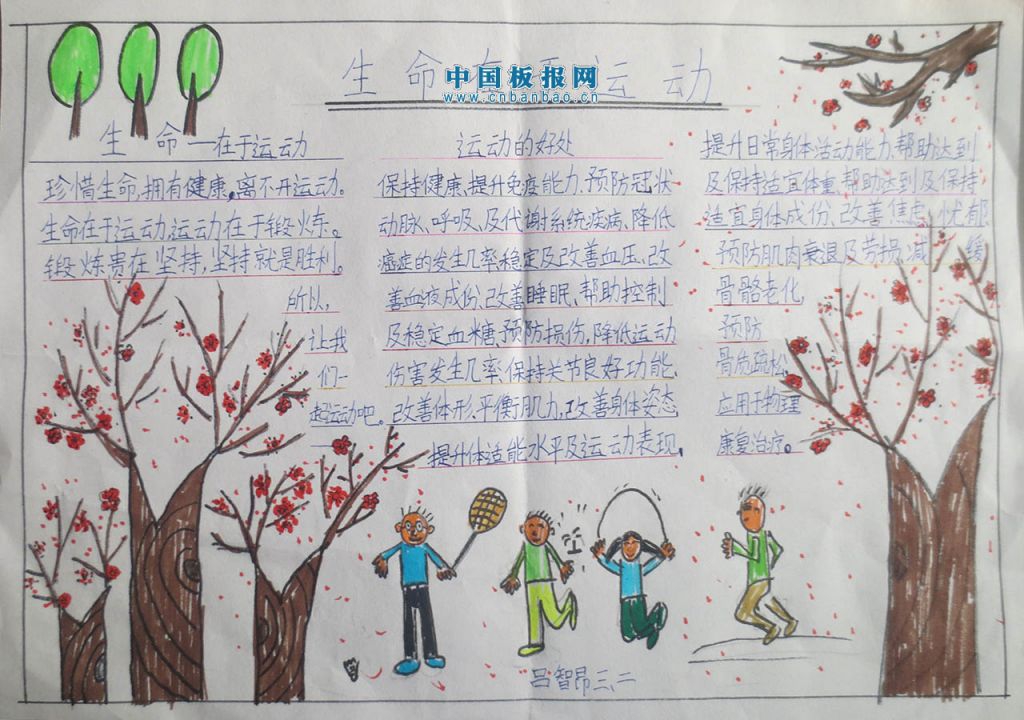 生命在于运动
中国板报网
www.cnbanbao.cn
生命—在于运动
珍惜生命,拥有健康,离不开运动。
生命在于运动,运动在于锻炼。
锻炼贵在坚持,坚持就是胜利。
所以,
让我
们一
起运动吧。
运动的好处
保持健康、提升免疫能力、预防冠状
动脉、呼吸、及代谢系统疾病、降低
癌症的发生几率稳定及改善血压、改
善血液成份、改善睡眠、帮助控制
及稳定血糖、预防损伤,降低运动
伤害发生几率、保持关节良好功能、
改善体形、平衡肌力、改善身体姿态
提升体适能水平及运动表现、
提升日常身体活动能力、帮助达到
及保持适宜体重、帮助达到及保持
适宜身体成份、改善焦虑、忧郁
预防肌肉衰退及劳损、减缓
骨骼老化,
预防
骨质疏松、
应用于物理
康复治疗。
吕智昂三、二